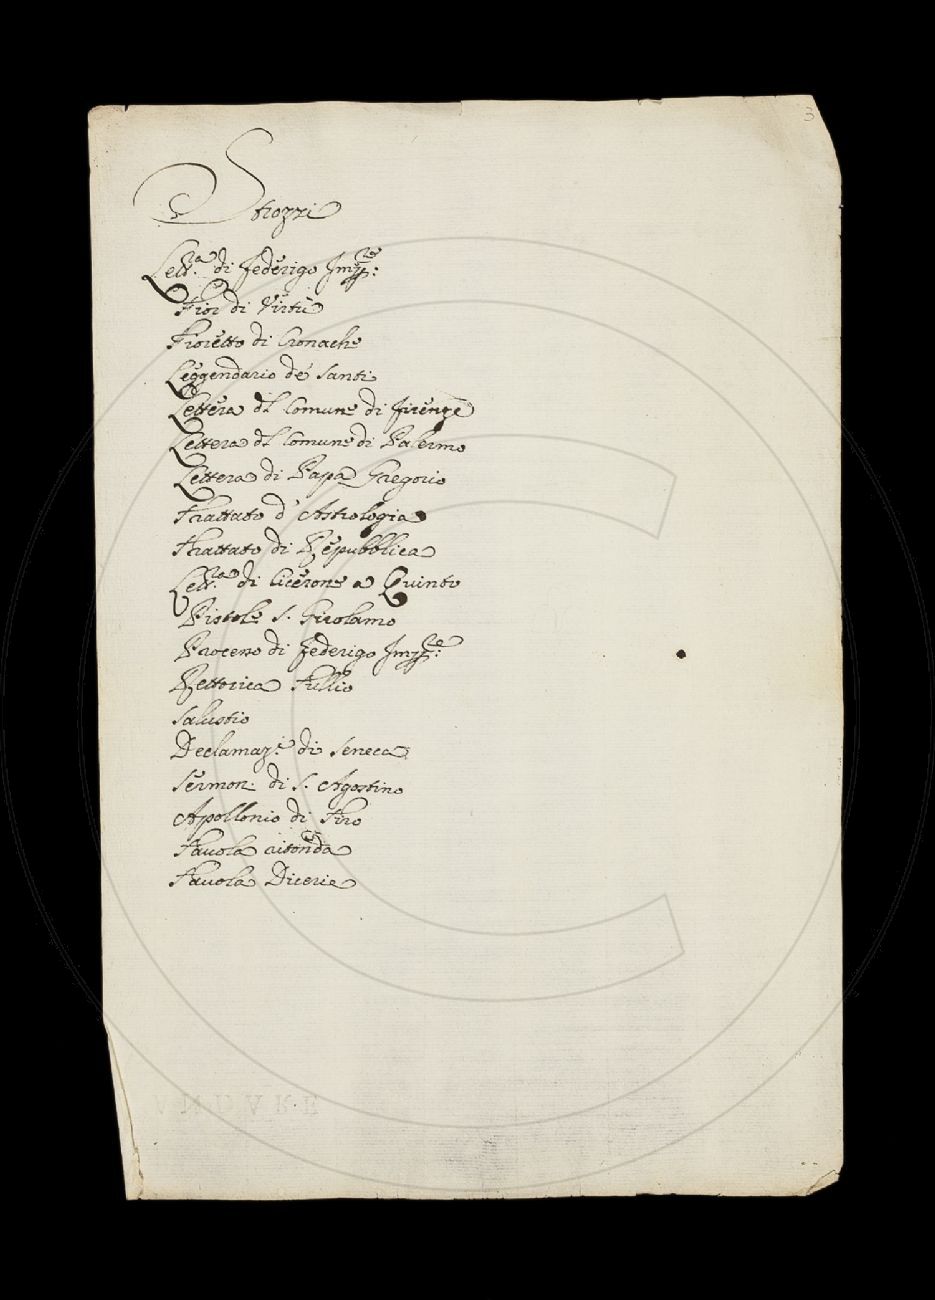 3
Strozzi
Lett.ra di Federigo Imp.re:
Fior di Virtù
Fioretto di Cronache
Leggendario de' Santi
Lettera dl Comune di Firenze
Lettera dl Comune di Palermo
Lettera di Papa Gregorio
Trattato d' Astrologia
Trattato di Repubblica
Lett.ra di Cicerone a Quinto
Pistole S. Girolamo
Processo di Federigo Imp.re:
Rettorica Tullio
Salustio
Declamaz.e di Seneca
Sermon. di S. Agostino
Apollonio di Tiro
Tavola ritonda
Tavola Dicerie